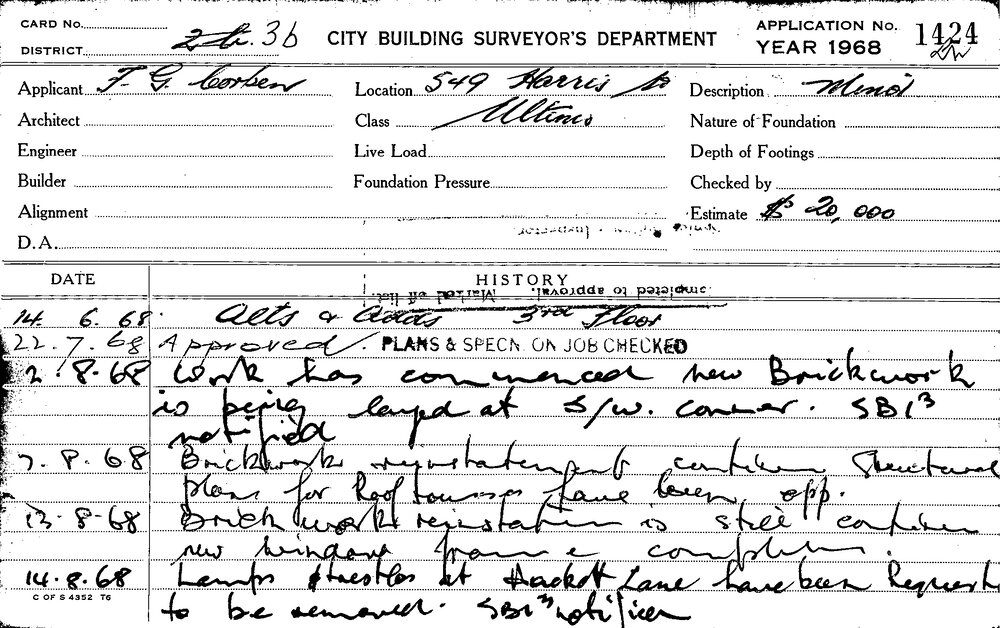 CARD No.
DISTRICT 36
CITY BUILDING SURVEYOR'S DEPARTMENT
APPLICATION No. 1424
YEAR 1968
Applicant F. G. Corben
Location 549 Harris St
Description Minor
Architect
Class Ultimo
Nature of Foundation
Engineer
Live Load
Depth of Footings
Builder
Foundation Pressure
Checked by
Alignment
Estimate $ 20,000
D.A.
DATE
HISTORY
completed to approval. Marked off list
14. 6. 68. Alts & Adds 3rd Floor
22.7.68 Approved. PLANS & SPECN. ON JOB CHECKED
2.8.68 Work has commenced new Brickwork
is being layed at S/W. conner. SBI3
notified
7.8.68 Brickwork reinstatement Structural
plans for Roof have been app.
13-8-68 Brick work is still
new window frame
14.8.68 Lamps & trestles at Hackett Lane have been Request
to be removed. SBI3 notified
C OF S 4352 T6